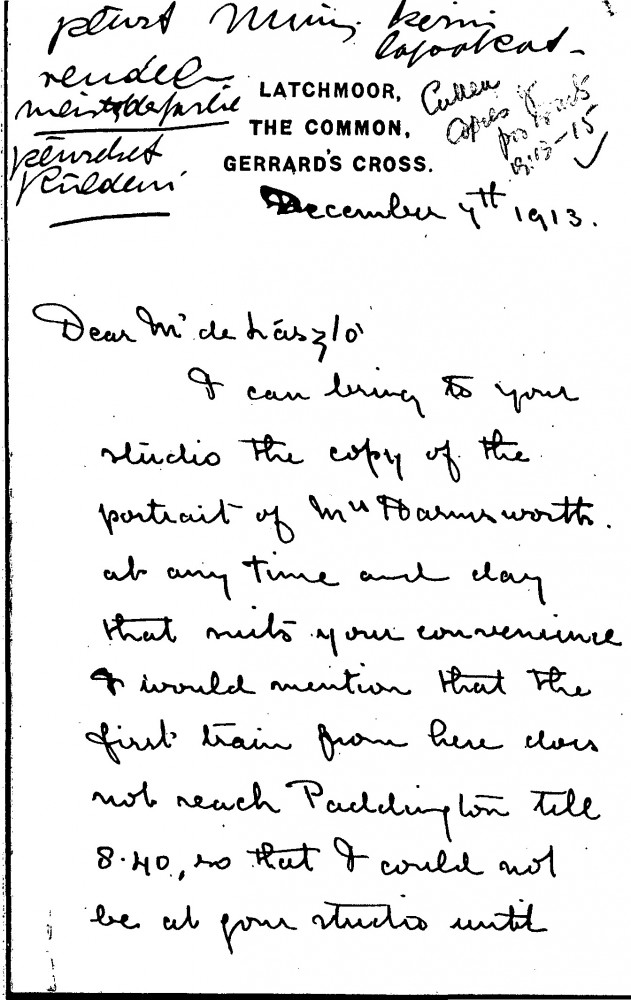 pénzt
LATCHMOOR,
THE COMMON,
GERRARD'S CROSS.
Cullen
copies of
portraits
1913-15
December 7th 1913.
Dear Mr de László
I can bring to your
studio the copy of the
portrait of Mrs Harmsworth.
at any time and day
that suits your convenience
I would mention that the
first train from here does
not reach Paddington till
8.40, so that I could not
be at your studio until